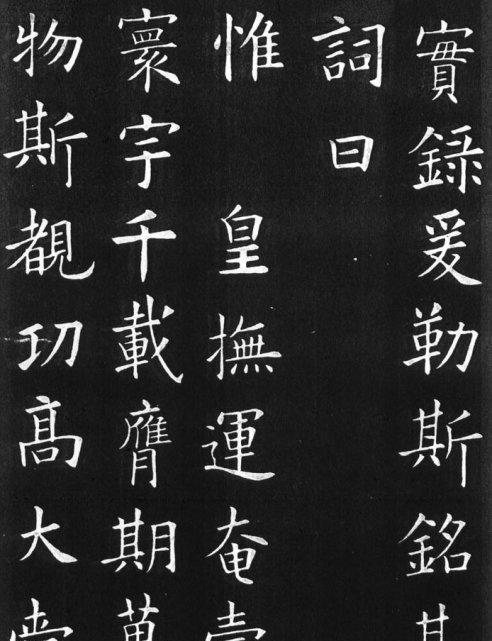 實錄爰勒斯銘
詞曰
惟 皇撫運奄
寰宇千載膺期
物斯覩功髙大